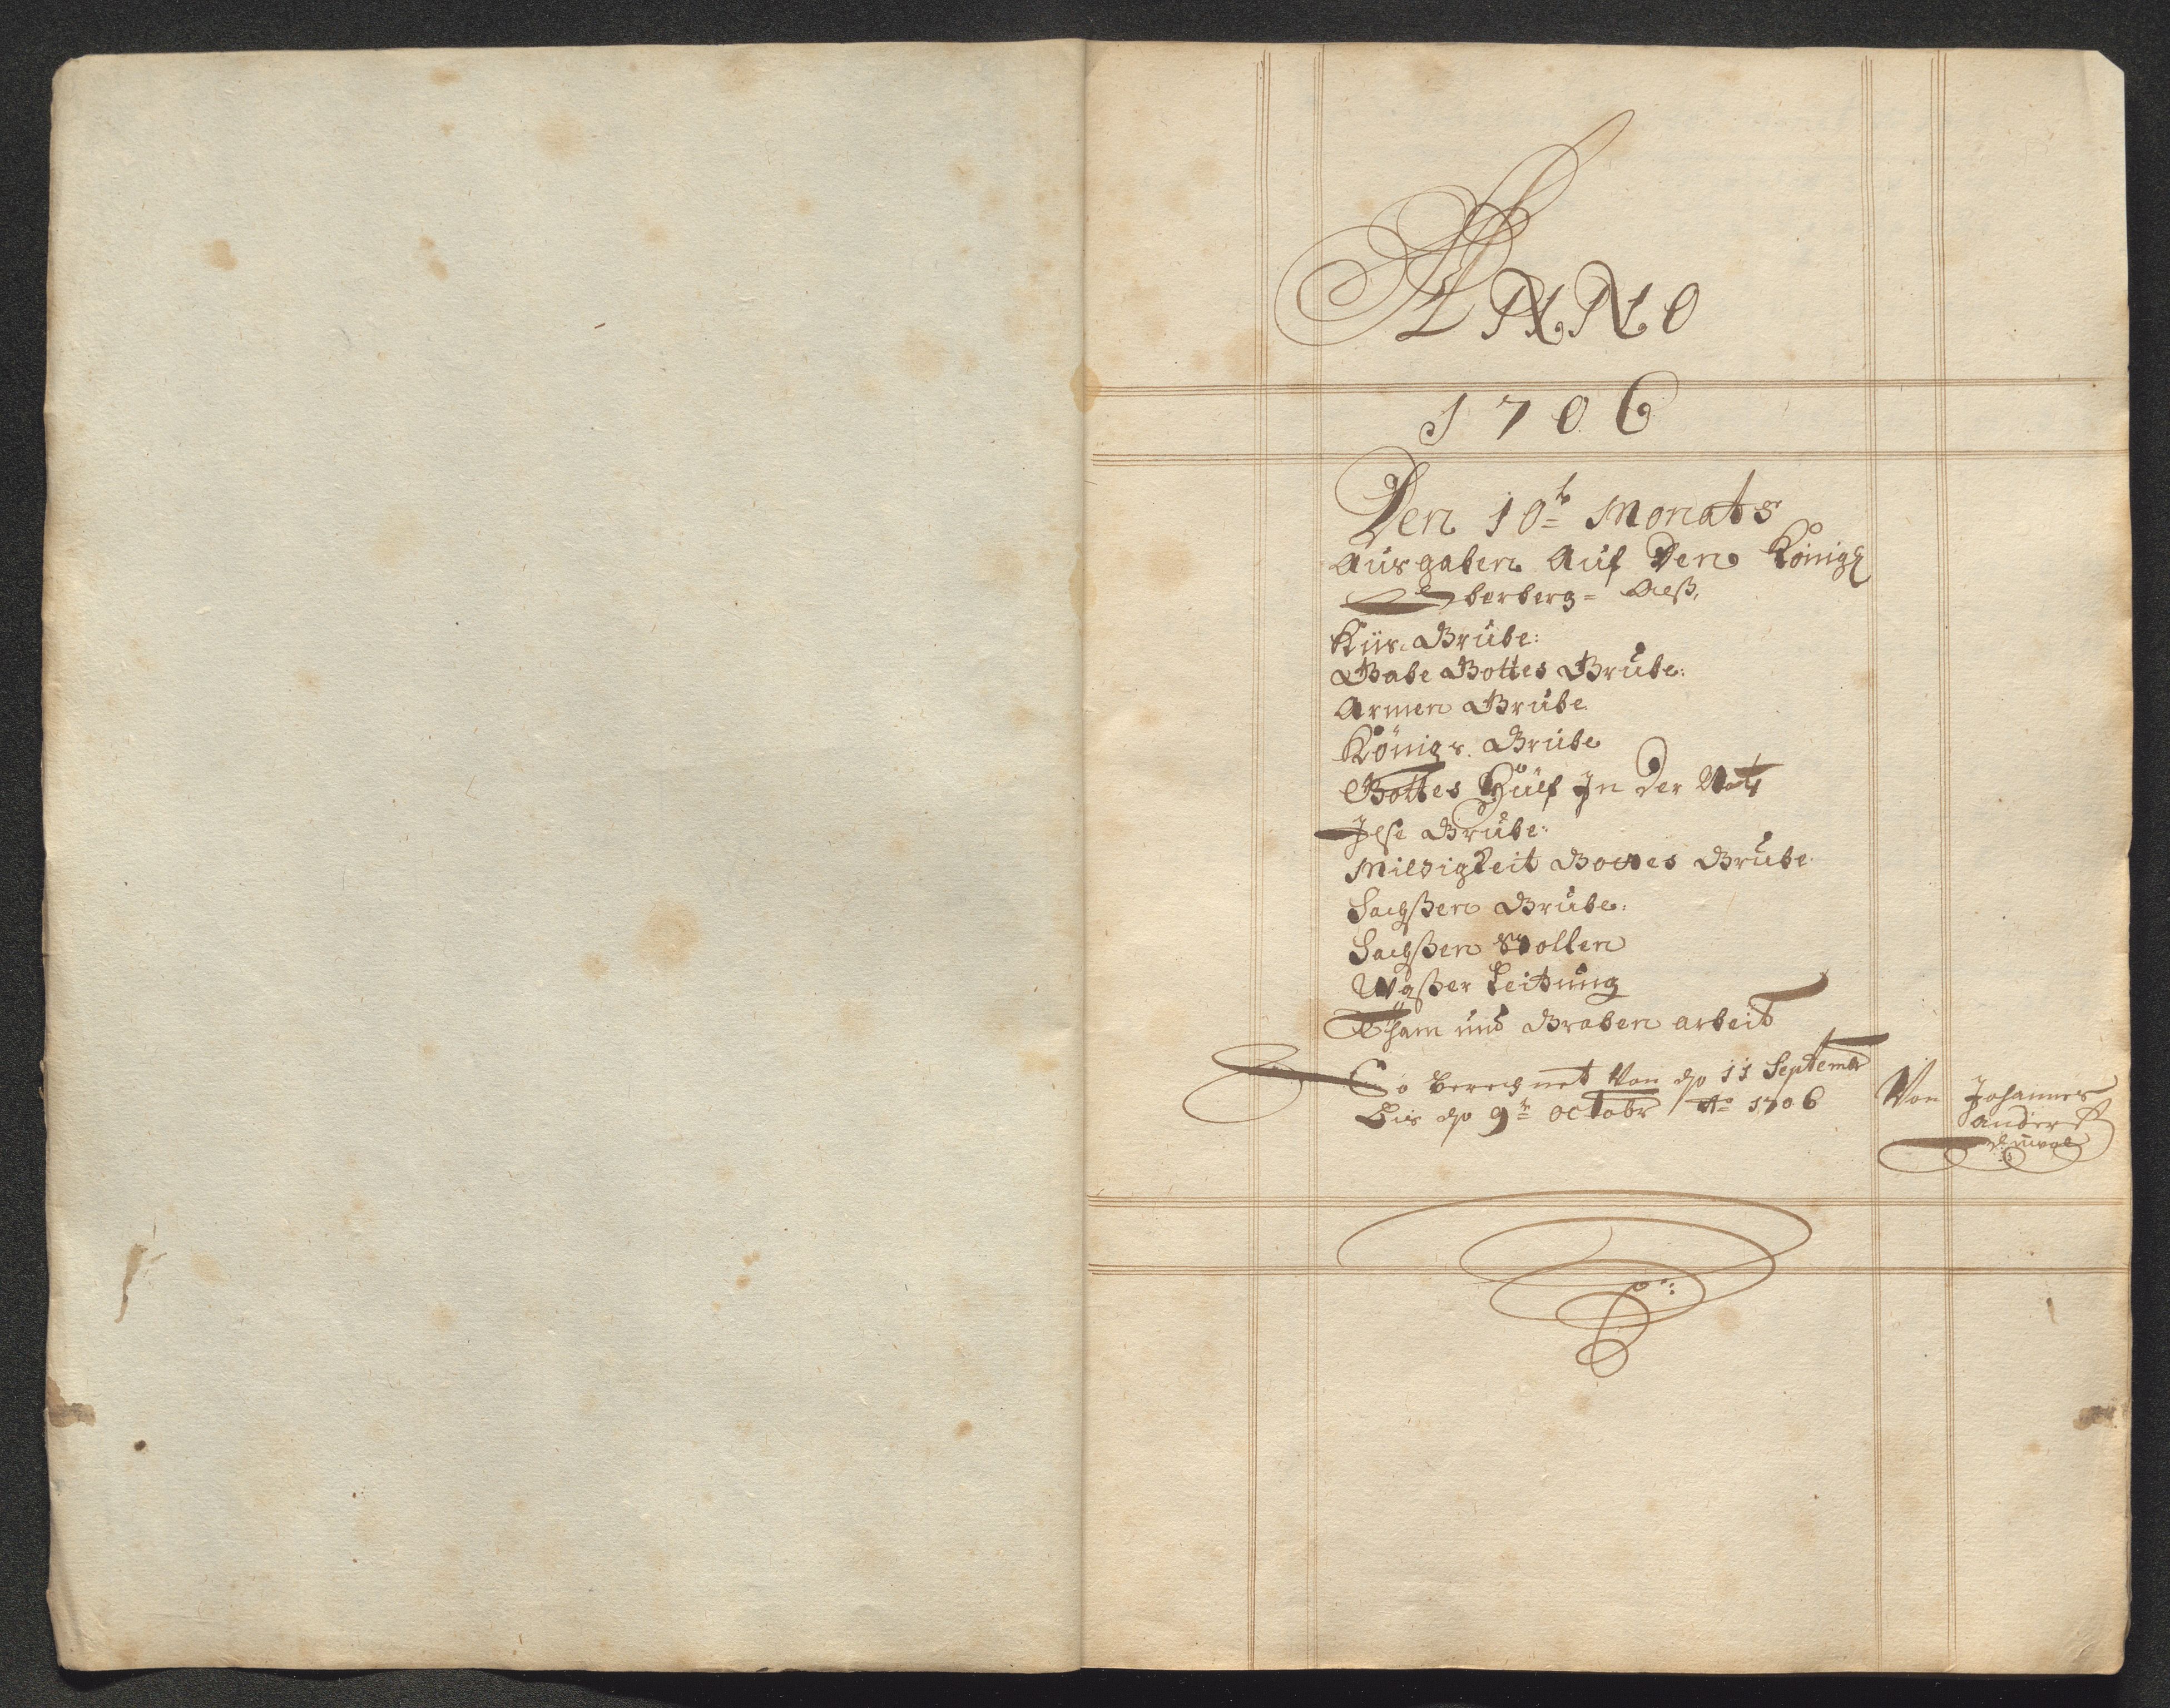 ANNO
1706
Den 10t Monats
Ausgaben Auf Den Königl
Silberberg=
Küs. Grube:
Gabe Gottes Grube:
Armen Grube
Königs. Grube
Gottes Hülf In Der Noth
Grube:
Mildigkeit Gottes Grube
Sachßen Grube:
Sachßen Stollen
Waßer Leitung
Tham und Graben arbeit
So berechnet Von dho 11 Septembr
Bis dho 9t octobr Ao 1706
Von Johannes
Anders